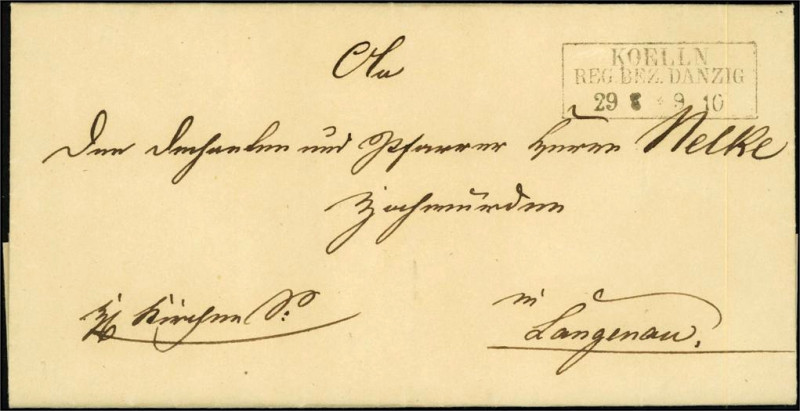 KOELLN
REG. BEZ. DANZIG
29 8 * 9 10
An
Den Dechanten und Pfarrer Herrn Nelke
Hochwürden
Kirchen S:
in
Langenau.